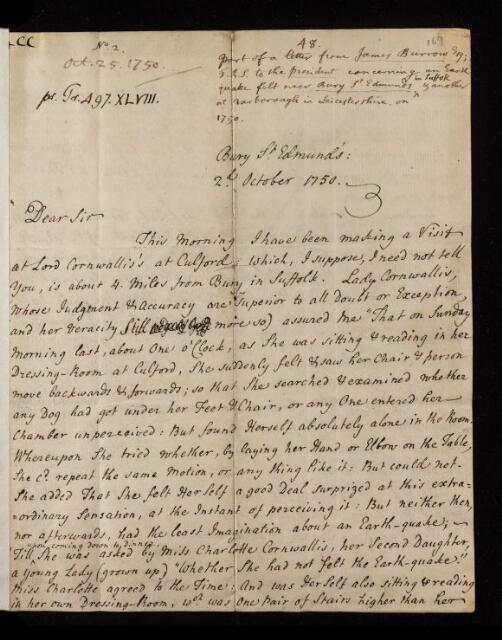 CC
No 2.
Oct. 25. 1750.
48.
169
part of a letter from James Burrow Esq;
F.R.S. to the president concerning an Earth
quake felt near Bury St. Edmunds in Suffolk & another
at Narborough in Leicestershire, on
1750.
pr. Tr. 497. XLVIII.
Bury St Edmund's:
2d. October 1750.
Dear Sir
This Morning I have been making a Visit
at Lord Cornwallis's at Culford; Which, I suppose, I need not tell
You, is about 4. Miles from Bury in Suffolk. Lady Cornwallis,
whose Judgment & Accuracy are Superior to all Doubt or Exception,
and her Veracity still more so) assured Me "That on Sunday
Morning last, about One o'Clock, as She was sitting & reading in her
Dressing-Room at Culford, She suddenly felt & saw her Chair & person
move backwards & forwards; so that She searched & examined whether
any Dog had got under her Feet & Chair, or any One entered her
Chamber unperceived: But found Herself absolutely alone in the Room.
Whereupon She tried whether, by laying her Hand or Elbow on the Table,
She cd. repeat the same Motion, or any thing like it: But could not.
She added That She felt Herself a good Deal surprized at this extra=
=ordinary Sensation, at the Instant of perceiving it: But neither then,
nor afterwards, had the least Imagination about an Earth-quake;
upon coming down to dinner
Till She was asked by Miss Charlotte Cornwallis, her Second Daughter,
a young Lady (grown up) "Whether She had not felt the Earth-quake?"
Miss Charlotte agreed to the Time: And was Herself also sitting & reading
in her own Dressing-Room, wch. was One Pair of Stairs higher than her